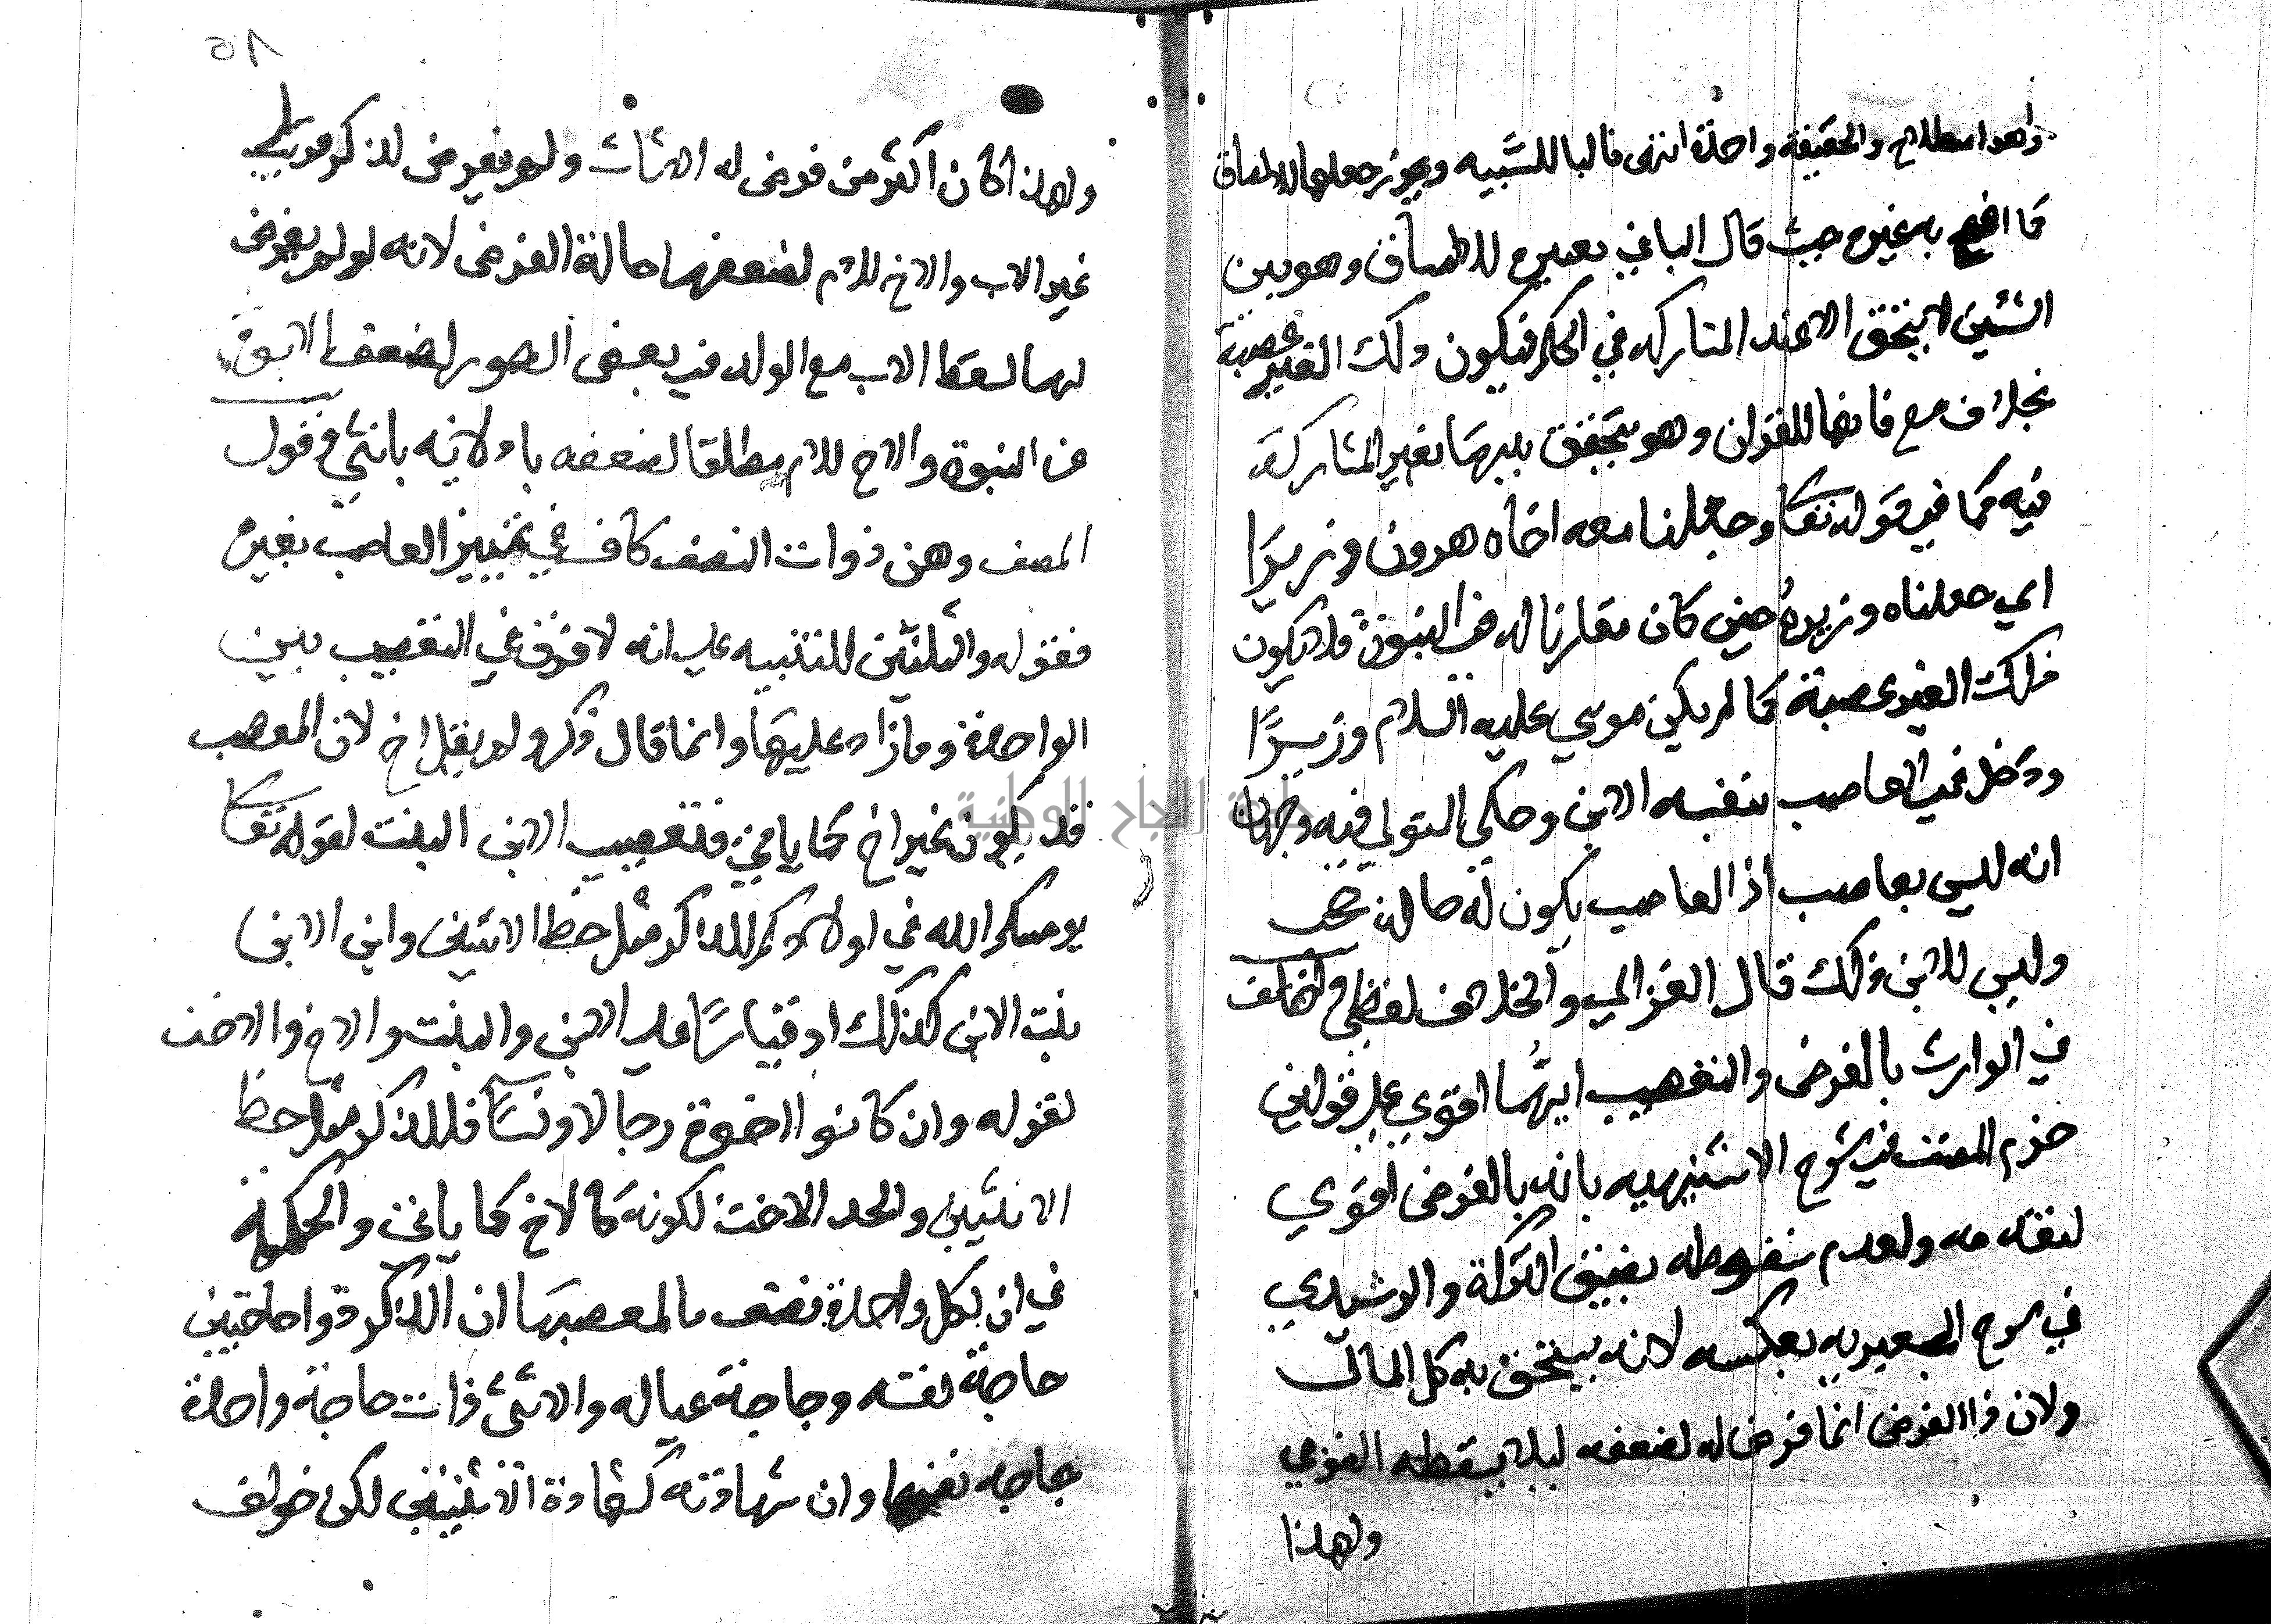 واهد اصطلاح والحقيقة واحدة انتهى فالبا للسببيه ويجوز جعلها للالصاق
كما افصح به غيره حيث قال الباغي بغيره للالصاق وهو بين
الشيئين لا يتحقق الا عند المشاركه في الحكم فيكون ذلك الغير عصبة
بخلاف مع فانها للقران وهو يتحقق بينهما بغير المشاركة
فيه كما في قوله تعا وجعلنا معه اخاه هرون وزيرا
اي جعلناه وزيره حين كان مقارنا له في النبوة فلا يكون
ذلك الغير عصبة كما لم يكن موسي عليه السلام وزيرًا
ودخل في العاصب بنفسه الابن وحكي المتولي فيه وجهان
انه ليس بعاصب اذ العاصب يكون له حالة حجب
وليس للابن ذلك قال الغزالي والخلاف لفظي واختلف
في الوارث بالفرض والتعصيب ايهما اقوي علي قولين
جزم المصنف في شرح الاشنهيه بانه بالفرض اقوي
لتقدمه ولعدم سقوطه بضيق التركة والرشيدي
في شرح الجعبريه بعكسه لانه يستحق به كل المال
ولان ذا الفرض انما فرض له لضعفه ليلا يسقطه القوي
ولهذا
15
ولهذا كان اكثر من فرض له الاناث ولم يفرض لذكر مدلي
غير الاب والاخ للام لضعفهما حالة الفرض لانه لو لم يفرض
لهما لسقط الاب مع الولد في بعض الصور لضعف الابوة
عن البنوة والاخ للام مطلقا لضعفه بادلايه بانثي وقول
المصنف وهن ذوات النصف كاف في تمييز العاصب بغيره
فقوله والثلثين للتنبيه علي انه لا فرق في التعصيب بين
الواحدة وما زاد عليها وانما قال ذكر ولم يقل اخ لان المعصب
قد يكون غير اخ كما ياتي فتعصيب الابن البنت لقوله تعا
يوصيكم الله في اولادكم للذكر مثل حظ الانثيين وابن الابن
بنت الابن كذلك او قياسًا علي الابن والبنت والاخ والاخت
لقوله وان كانوا اخوة رجالا ونسآ فللذكر مثل حظ
الانثيين والجد الاخت لكونه كالاخ كما ياتي والحكمة
في ان لكل واحدة نصف ما لمعصبها ان الذكر ذو حاجتين
حاجة نفسه وحاجة عياله والانثى ذات حاجة واحدة
حاجة نفسها وان شهادته كشهادة انثيين لكن خولف
جامعة النجاح الوطنية